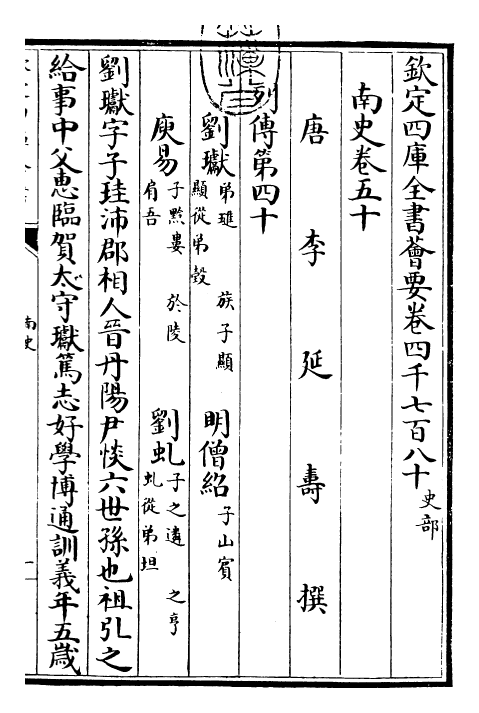 欽定四庫全書薈要卷四千七百八十 史部
南史卷五十
唐 李 延 壽 撰
列傳第四十
劉瓛 弟璡 族子顯 顯從弟瑴 明僧紹 子山賓
庾易 子黔婁 於陵 肩吾 劉虬 子之遴 之亨 虬從弟坦
劉瓛字子珪沛郡相人晉丹陽尹惔六世孫也祖弘之
給事中父惠臨賀太守瓛篤志好學博通訓義年五歲
南史